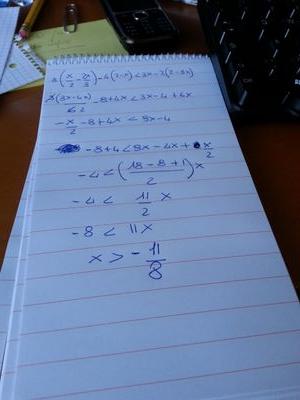 3(x/2 - 2x/3) - 4(2-x) < 3x - 2(2-3x)
3(3x-4x)/6 2 - 8+4x < 3x-4+6x
-x/2 - 8+4x < 9x-4
-8+4 < 9x-4x+ x/2
-4 < ((18-8+1)/2)x
-4 < 11/2 x
-8 < 11x
x > - 11/8